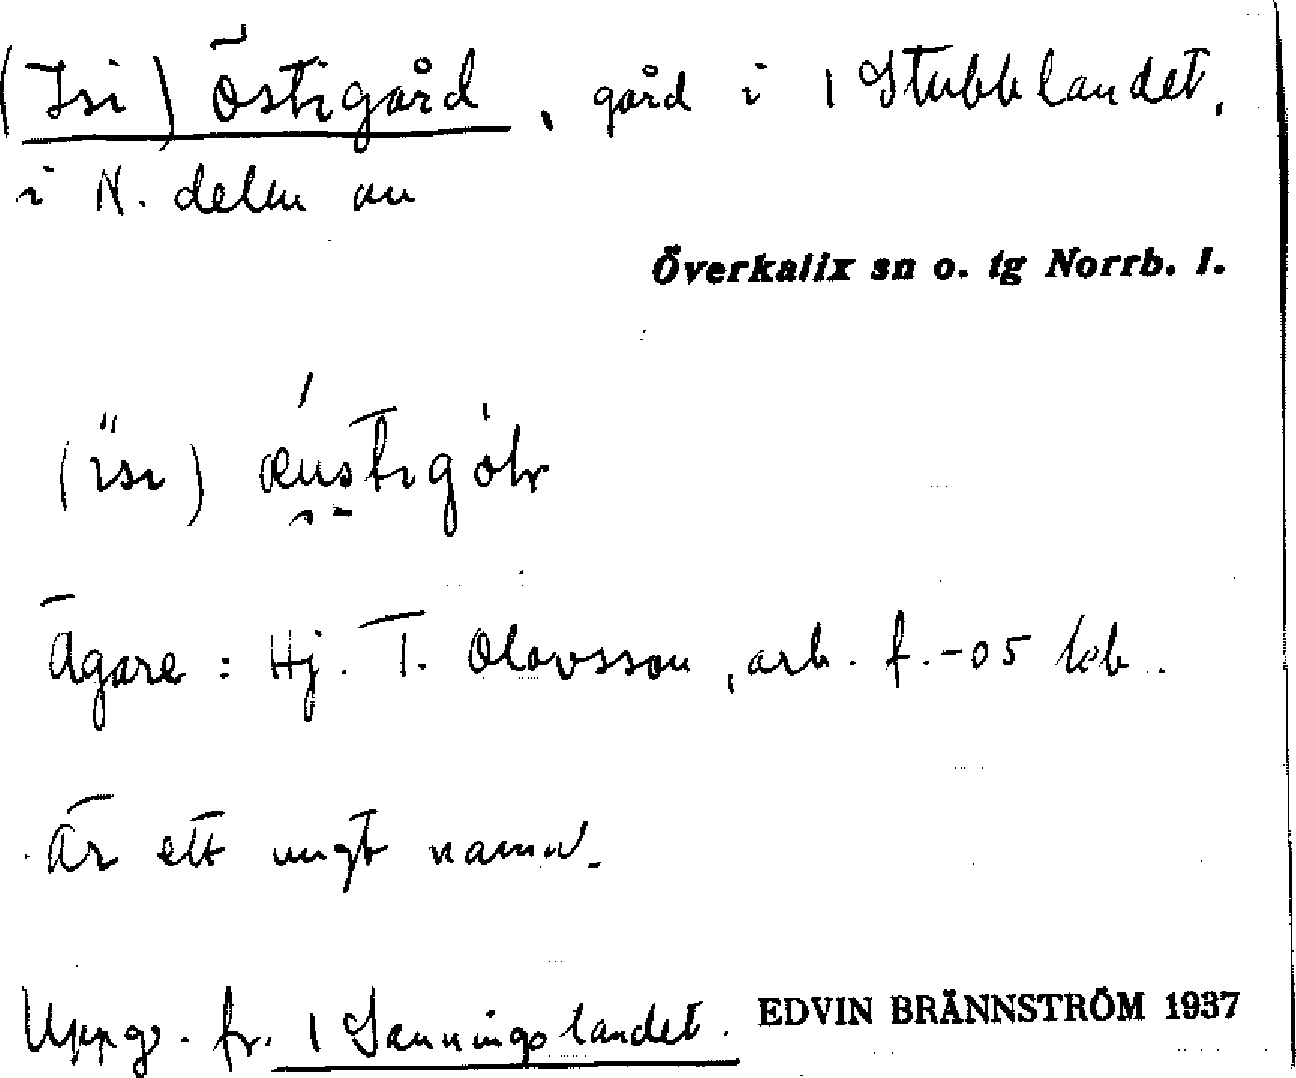 (Isi) Östigård, gård i 1 Stubblandet,
i N. delen av
Överkalix sn o. tg Norrb. l.
(ïsi) æustigólr
Ägare: Hj. T. Olovsson, arb. f. -05
Är ett ungt namn.
Uppg. fr. 1 Sänningslandet. EDVIN BRÄNNSTRÖM 1937